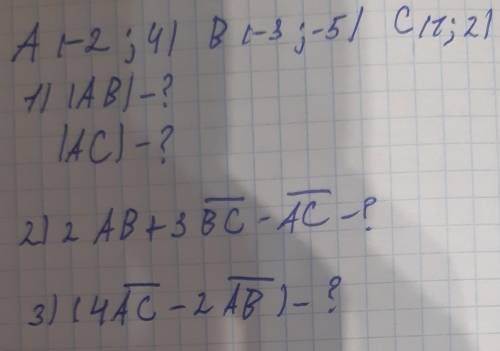 A(-2;4) B(-3;-5) C(1;2)
1) |AB| - ?
|AC| - ?
2) 2 AB + 3 B̅C̅ - A̅C̅ - ?
3) (4A̅C̅ - 2 A̅B̅) - ?